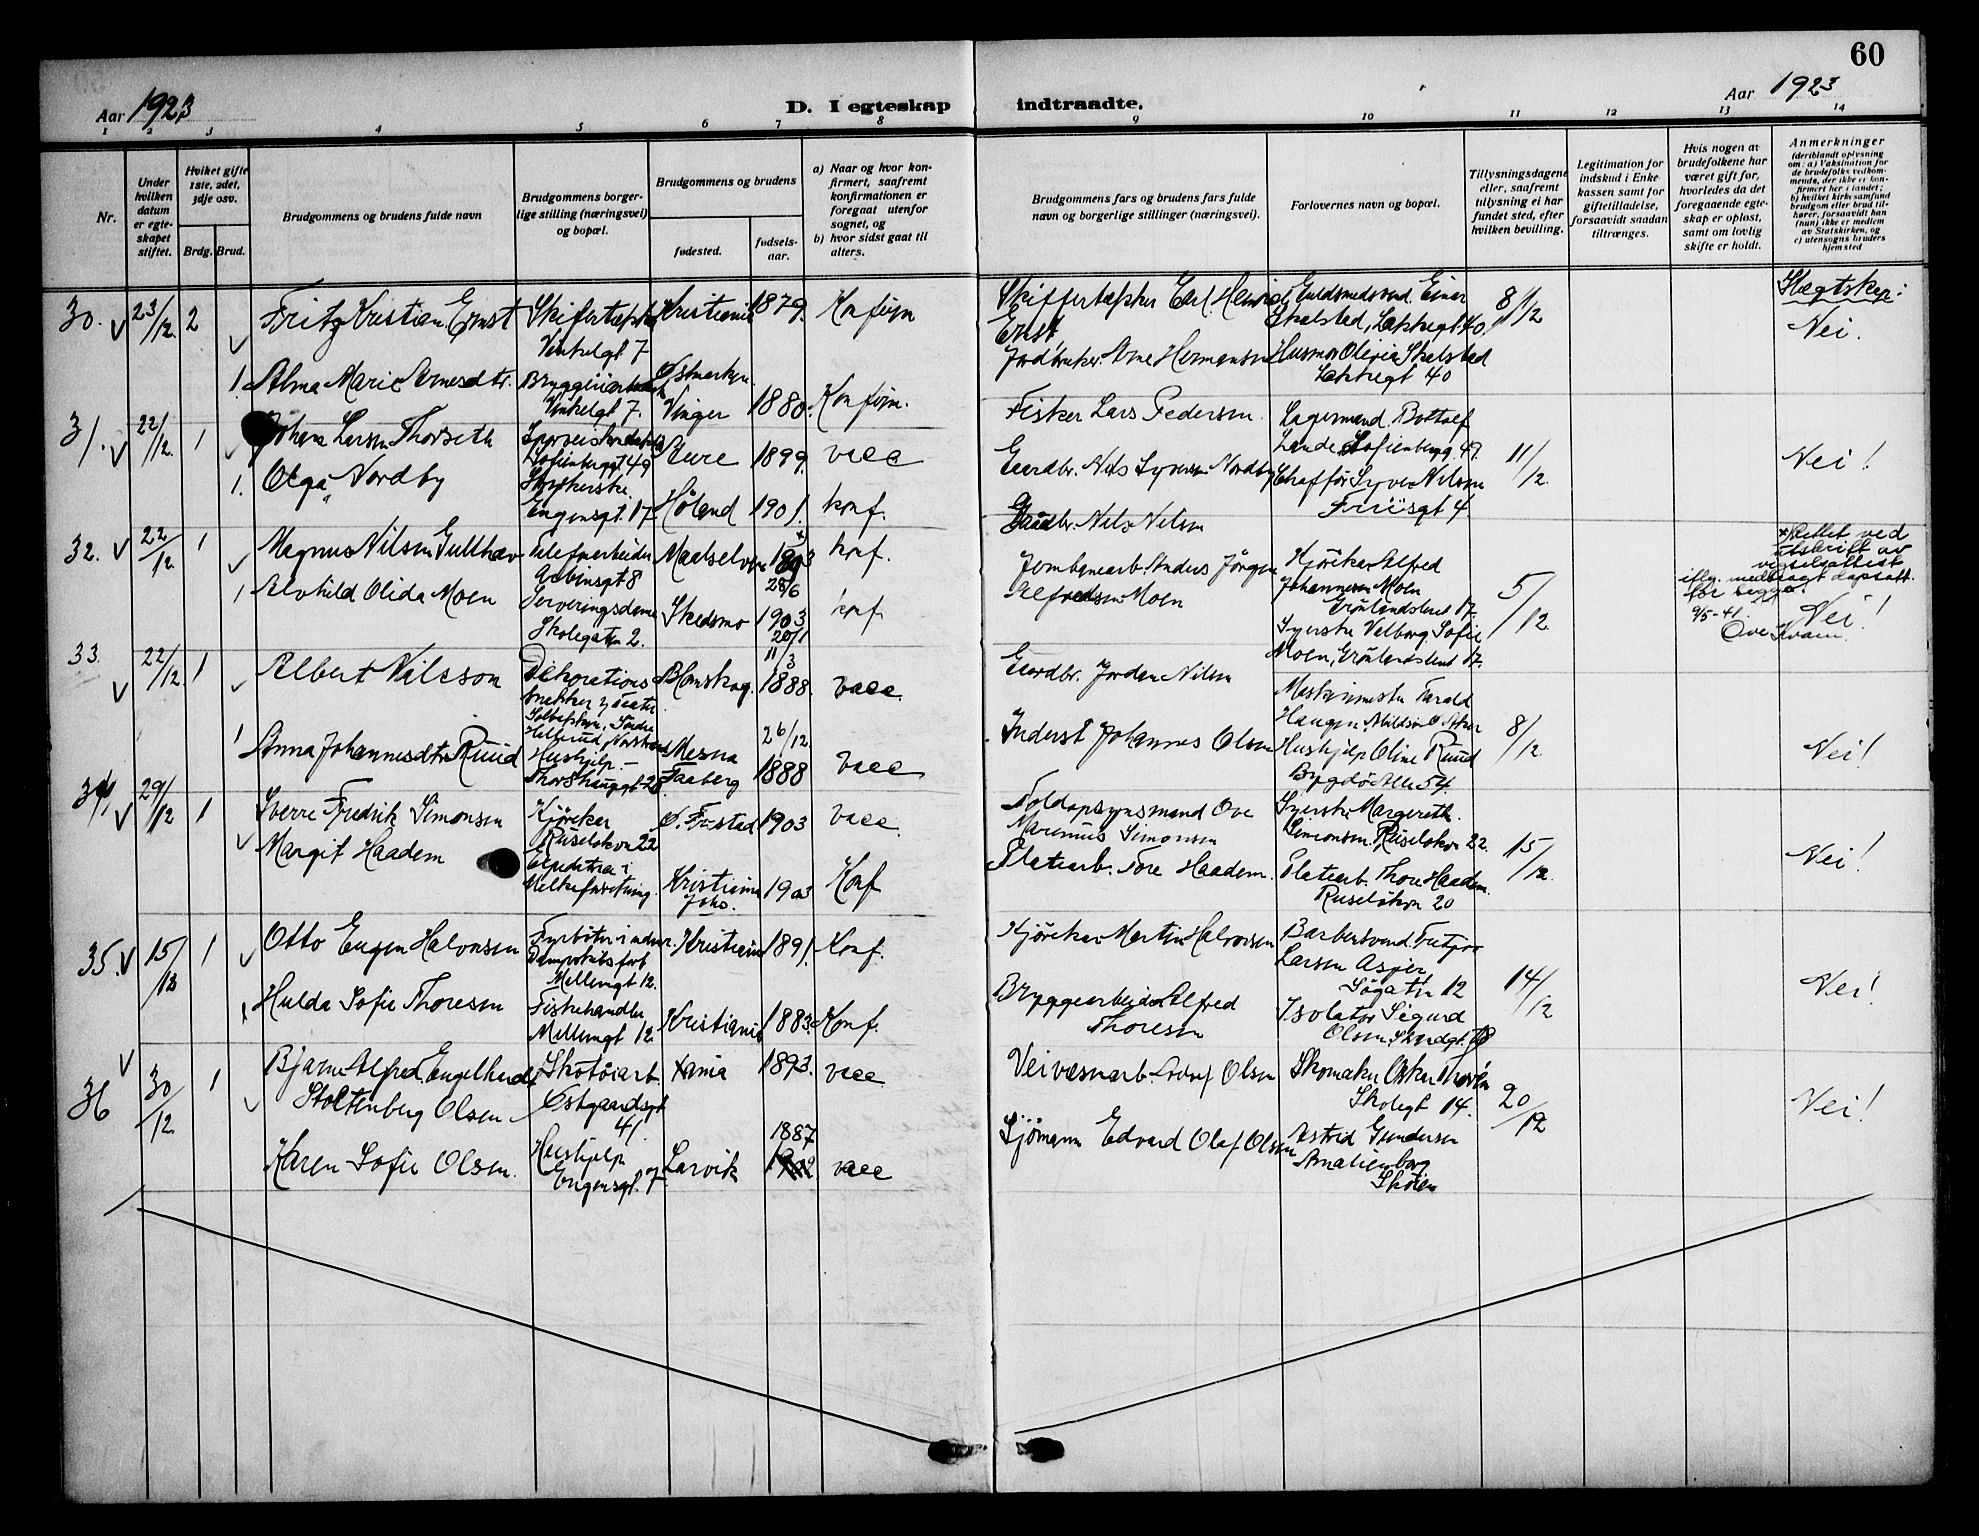 60
Aar 1923
D. I egteskap indtraadte.
Aar 1923
1 2 3 4 5 6 7 8 9 10 11 12 13 14
Nr.
Under hvilken datum er egteskapet stiftet.
Hvilket gifte 1ste, 2det, 3dje osv.
Brdg. Brud.
Brudgommens og brudens fulde navn
Brudgommens borgerlige stilling (næringsvei) og bopæl.
Brudgommens og brudens
fødested.
fødselsaar.
a) Naar og hvor konfirmert, saafremt konfirmationen er foregaat utenfor sognet, og
b) hvor sidst gaat til alters.
Brudgommens fars og brudens fars fulde navn og borgerlige stillinger (næringsvei).
Forlovernes navn og bopæl.
Tillysningsdagene eller, saafremt tillysning ei har fundet sted, efter hvilken bevilling.
Legitimation for indskud i Enkekassen samt for giftetilladelse, forsaavidt saadan tiltrænges.
Hvis nogen av brudefolkene har været gift før, hvorledes da det foregaaende egteskap er opløst, samt om lovlig skifte er holdt.
Anmerkninger
(deriblandt oplysning om: a) Vaksination for de brudefolks vedkommende, der ikke er konfirmert her i landet; b) hvilket kirkesamfund brudgom eller brud tilhører, forsaavidt han (hun) ikke er medlem av Statskirken, og c) utensogns bruders hjemsted
30. 23/12. 2
Fritz Kristian Ernst
Skifertækker
Vinkelgt 7
Kristiania 1879. Konfirm
Skiffertækker Carl Henrick
Ernst
Guldsmedsvend Einar
Skalstad, Løkkegt. 40.
8/12
Slegtskap:
Nei.
1. Alma Marie Arnesdtr.
Bryggeriarbeid
Vinkelgt 7.
Østmarken
Vinger 1880. Konfirm.
Jordbruker Arne Hermansen
Husmor Olivia Skalstad
Løkkegt 40
31. 22/12. 1
Johan Larsen Thorseth
Sofienberggt. 49
Aure 1899. vacc
Fisker Lars Pedersen
Lagermand Bottolf
Lande Sofienbergg. 49.
11/12.
Nei!
1. Olga Nordby
Strykerske
Eugensgt. 17
Høland 1901. konf.
Gaardbr. Nils Syversen Nordby
Chaffør Syver Nilsen
Friisgt 4.
32. 22/12. 1
Magnus Nilsen Gullhav
Telefonarbeider
Arbinsgt 8
Maalselven 1893
28/6
konf.
Gaardbr. Nils Nilsen
Kjørekar Alfred
Johannesen Moen
Grønlandsleret 17.
5/12.
x) Rettet ved
utskrift av
vigselsattest
iflg. medbragt dåpsatt.
for begge.
9/5-41.
Ove Kvam.
Nei!
1 Alvhild Olida Moen
Serveringsdame
Skolegaten 2.
Skedsmo 1903
20/1
konf.
Jernbanearb. Anders Jørgen
Alfredsen Moen
Syerske Valborg Sofie
Moen, Grønlandsleret 17.
33. 22/12. 1
Albert Nilsson
Dekorations
snekker
Blomskog.
11/3
1888. vacc.
Gaardbr. Jordan Nilsen
Maskinmester Harald
Haugen
8/12.
Nei!
1 Anna Johannesdtr Ruud
Hushjelp
Mesna
Faaberg
26/12.
1888 vacc
Inderst Johannes Olsen
Hushjelp Oline Ruud
Bygdø Alle 54.
34. 29/12 1
Sverre Fredrik Simonsen
Kjørekar
Ruseløkvn 22
Ø. Frestad 1903 vacc.
Toldopsynsmand Ove
Marinus Simonsen
Syerske Margareth.
Simonsen. Ruseløkvn 22.
15/12.
Nei!
Margit Haadem
Expeditrice i
Melkeforretning.
Kristiania
Joho. 1903 Konf
Platearb. Tore Haadem.
Platearb. Thore Haadem
Ruseløkvn 20
35. 15/12 1
Otto Eugen Halvorsen
Fyrbøter
Møllergt 12.
Kristiania 1891. Konf.
Kjørekar Martin Halvorsen
Barbersvend
Larsen Asper
Søgaten 12
14/12
Nei!
1 Hulda Sofie Thoresen
Fiskehandler
Møllergt 12.
Kristiania 1883. Konf.
Bryggearbeider Alfred
Thoresen
Isolatør Sigurd
Olsen
36 30/12. 1
Bjarne Alfred Engelhardt
Stoltenberg Olsen
Skotøiarb.
Østgaardsgt
41.
Xania 1893. vacc
Veivæsenarb. Olsen
Skomaker Oskar Thorén
Skolegt 14.
20/12
Nei!
Karen Sofie Olsen.
Hushjelp
Eugensgt. 7
Larvik
1887
vacc
Sjømann Edvard Olaf Olsen
Astrid Gundersen
Amalienborg
Skøien